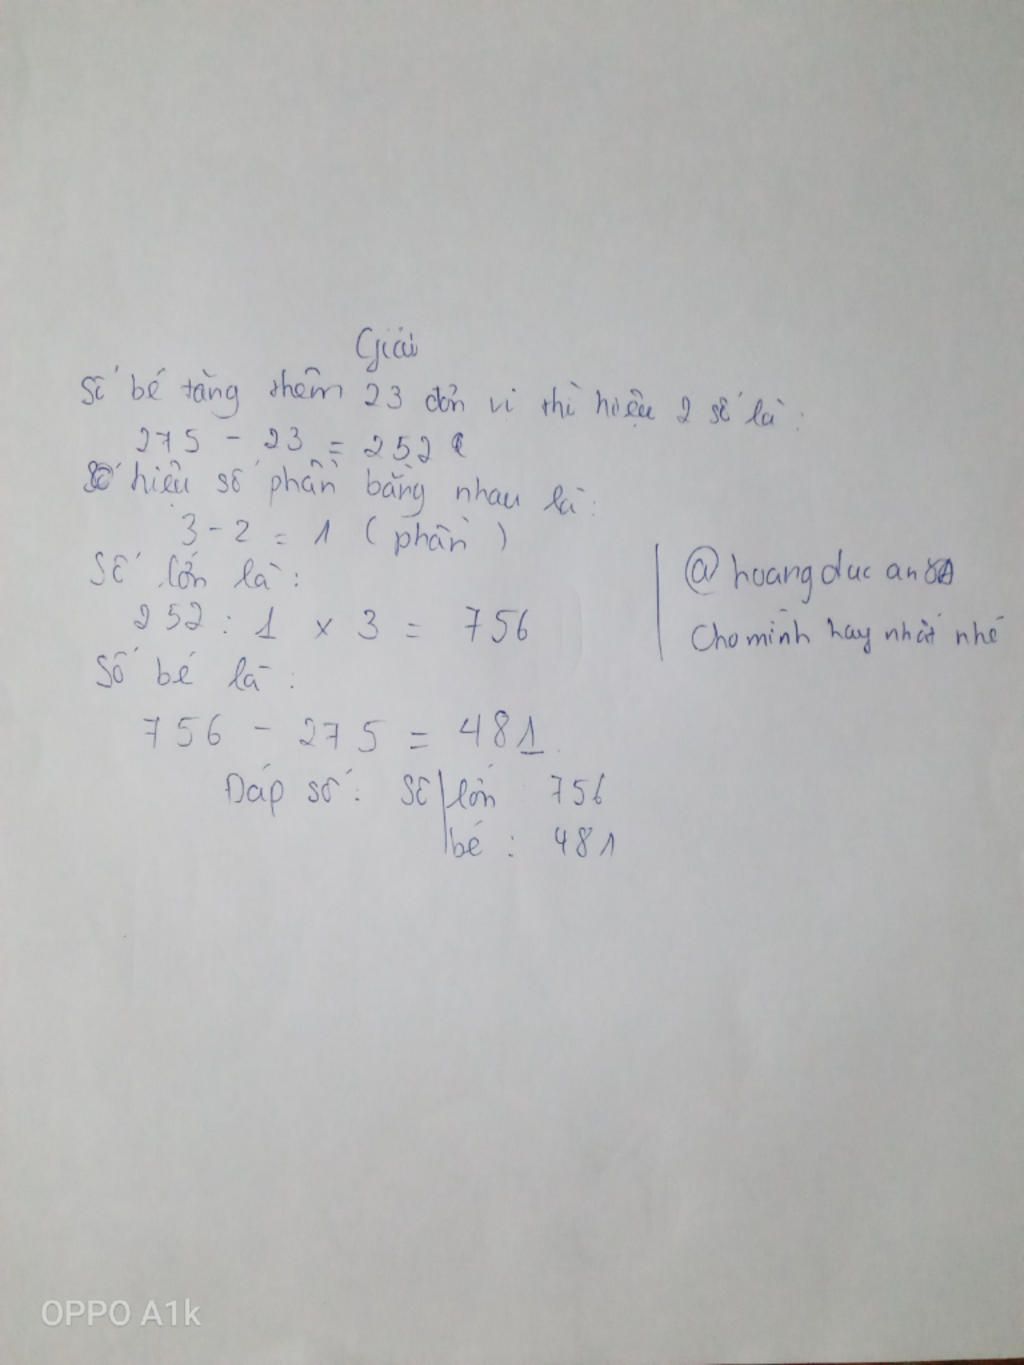 Giải
Số bé tăng thêm 23 đơn vị thì hiệu 2 số là:
275 - 23 = 252
hiệu số phần bằng nhau là:
3 - 2 = 1 (phần)
Số lớn là:
252 : 1 x 3 = 756
Số bé là:
756 - 275 = 481
Đáp số: Số lớn 756
bé : 481
@hoangducan
Cho mình hay nhất nhé
OPPO A1k